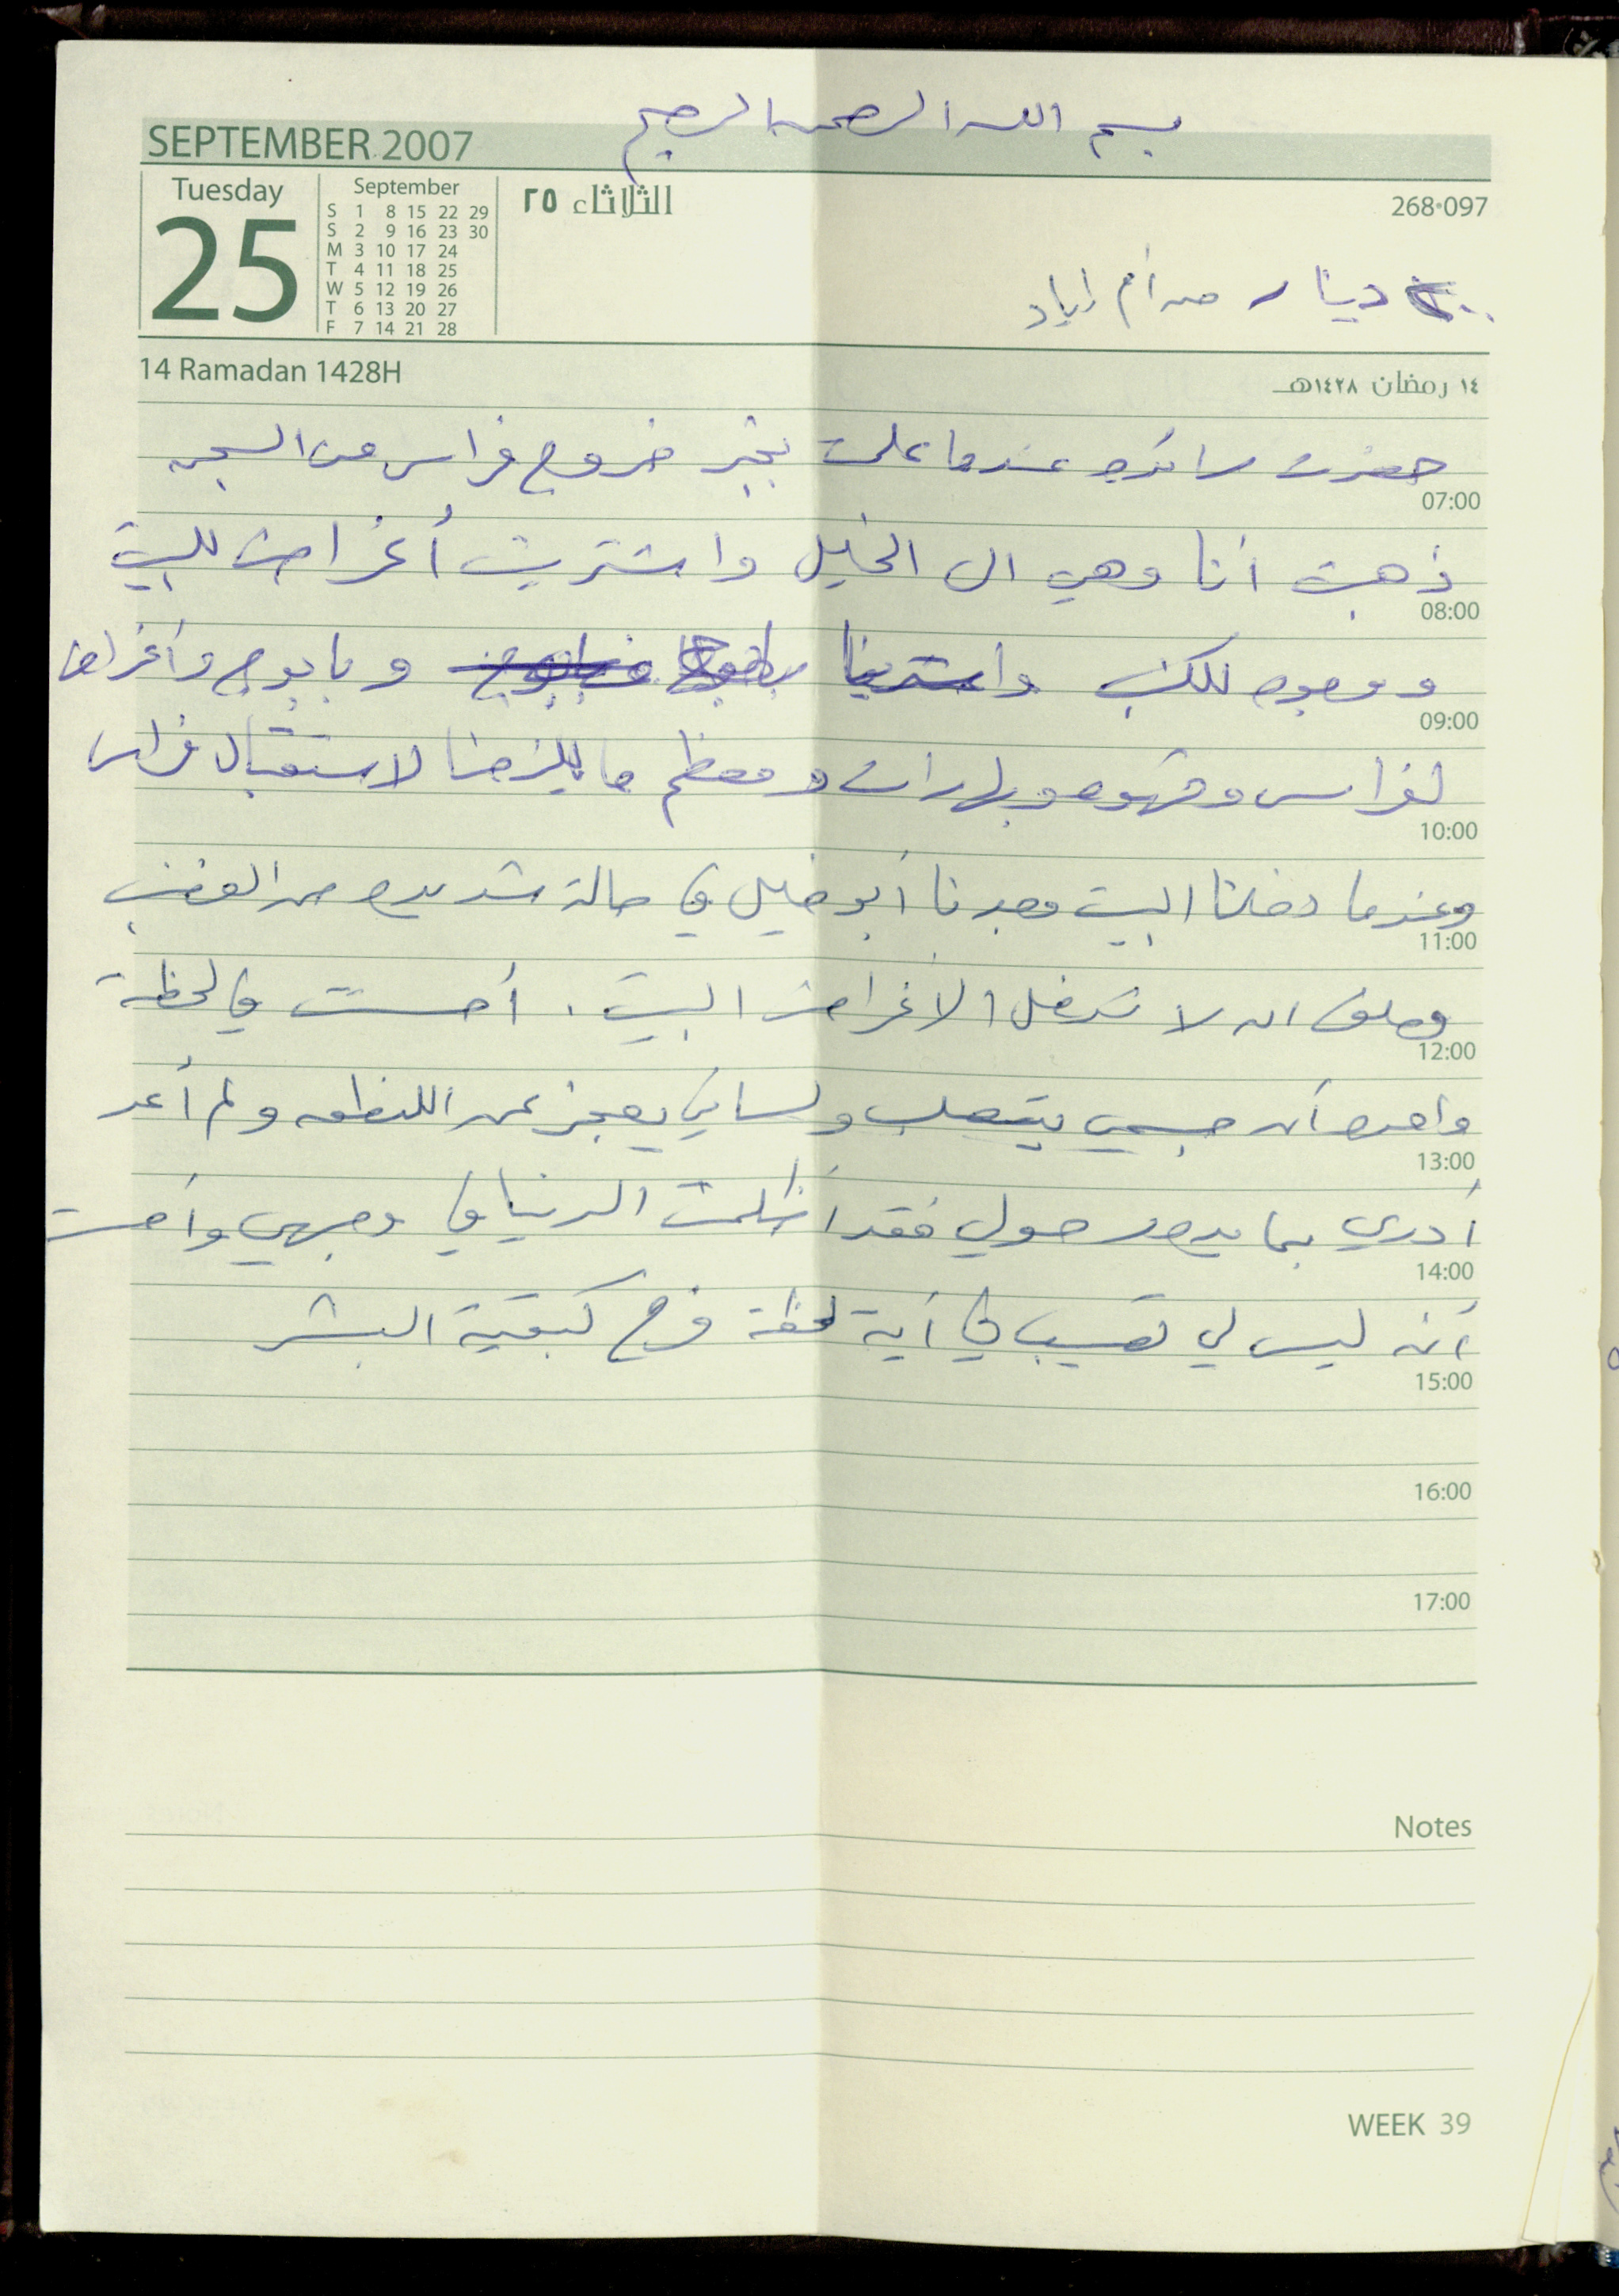 بسم الله الرحمن الرحيم
SEPTEMBER 2007
Tuesday
25
September
S 1 8 15 22 29
S 2 9 16 23 30
M 3 10 17 24
T 4 11 18 25
W 5 12 19 26
T 6 13 20 27
F 7 14 21 28
الثلاثاء ٢٥
268-097
دينار من أم اياد
14 Ramadan 1428H
١٤ رمضان ١٤٢٨هـ
حضرت سائده عندما علمت بخبر خروج فراس من السجن
07:00
ذهبت أنا وهي الى الخليل واشتريت أغراض للبيت
08:00
ووجوه للكنب واشترينا وبابوج وأغراض
09:00
لفراس وقهوه وبهارات ومعظم ما يلزمنا لاستقبال فراس
10:00
وعندما دخلنا البيت وجدنا أبو خليل في حالة شديده من الغضب
11:00
وحلف ان لا تدخل الأغراض البيت . أحسست في لحظة
12:00
واحده أن جسمي يتصلب ولساني يعجز عن النطق ولم أعد
13:00
أدري بما يدور حولي فقد أظلمت الدنيا في وجهي وأحسست
14:00
أنه ليس لي نصيب في أية لحظة فرح كبقية البشر
15:00
16:00
17:00
Notes
WEEK 39